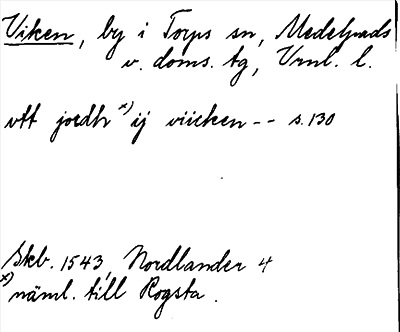 Viken, by i Torps sn, Medelpads
v. doms. tg, Vrnl. l.
vtt jordh x) ij viicken -- s. 130
Skb. 1543, Nordlander 4
x) näml. till Rogsta.